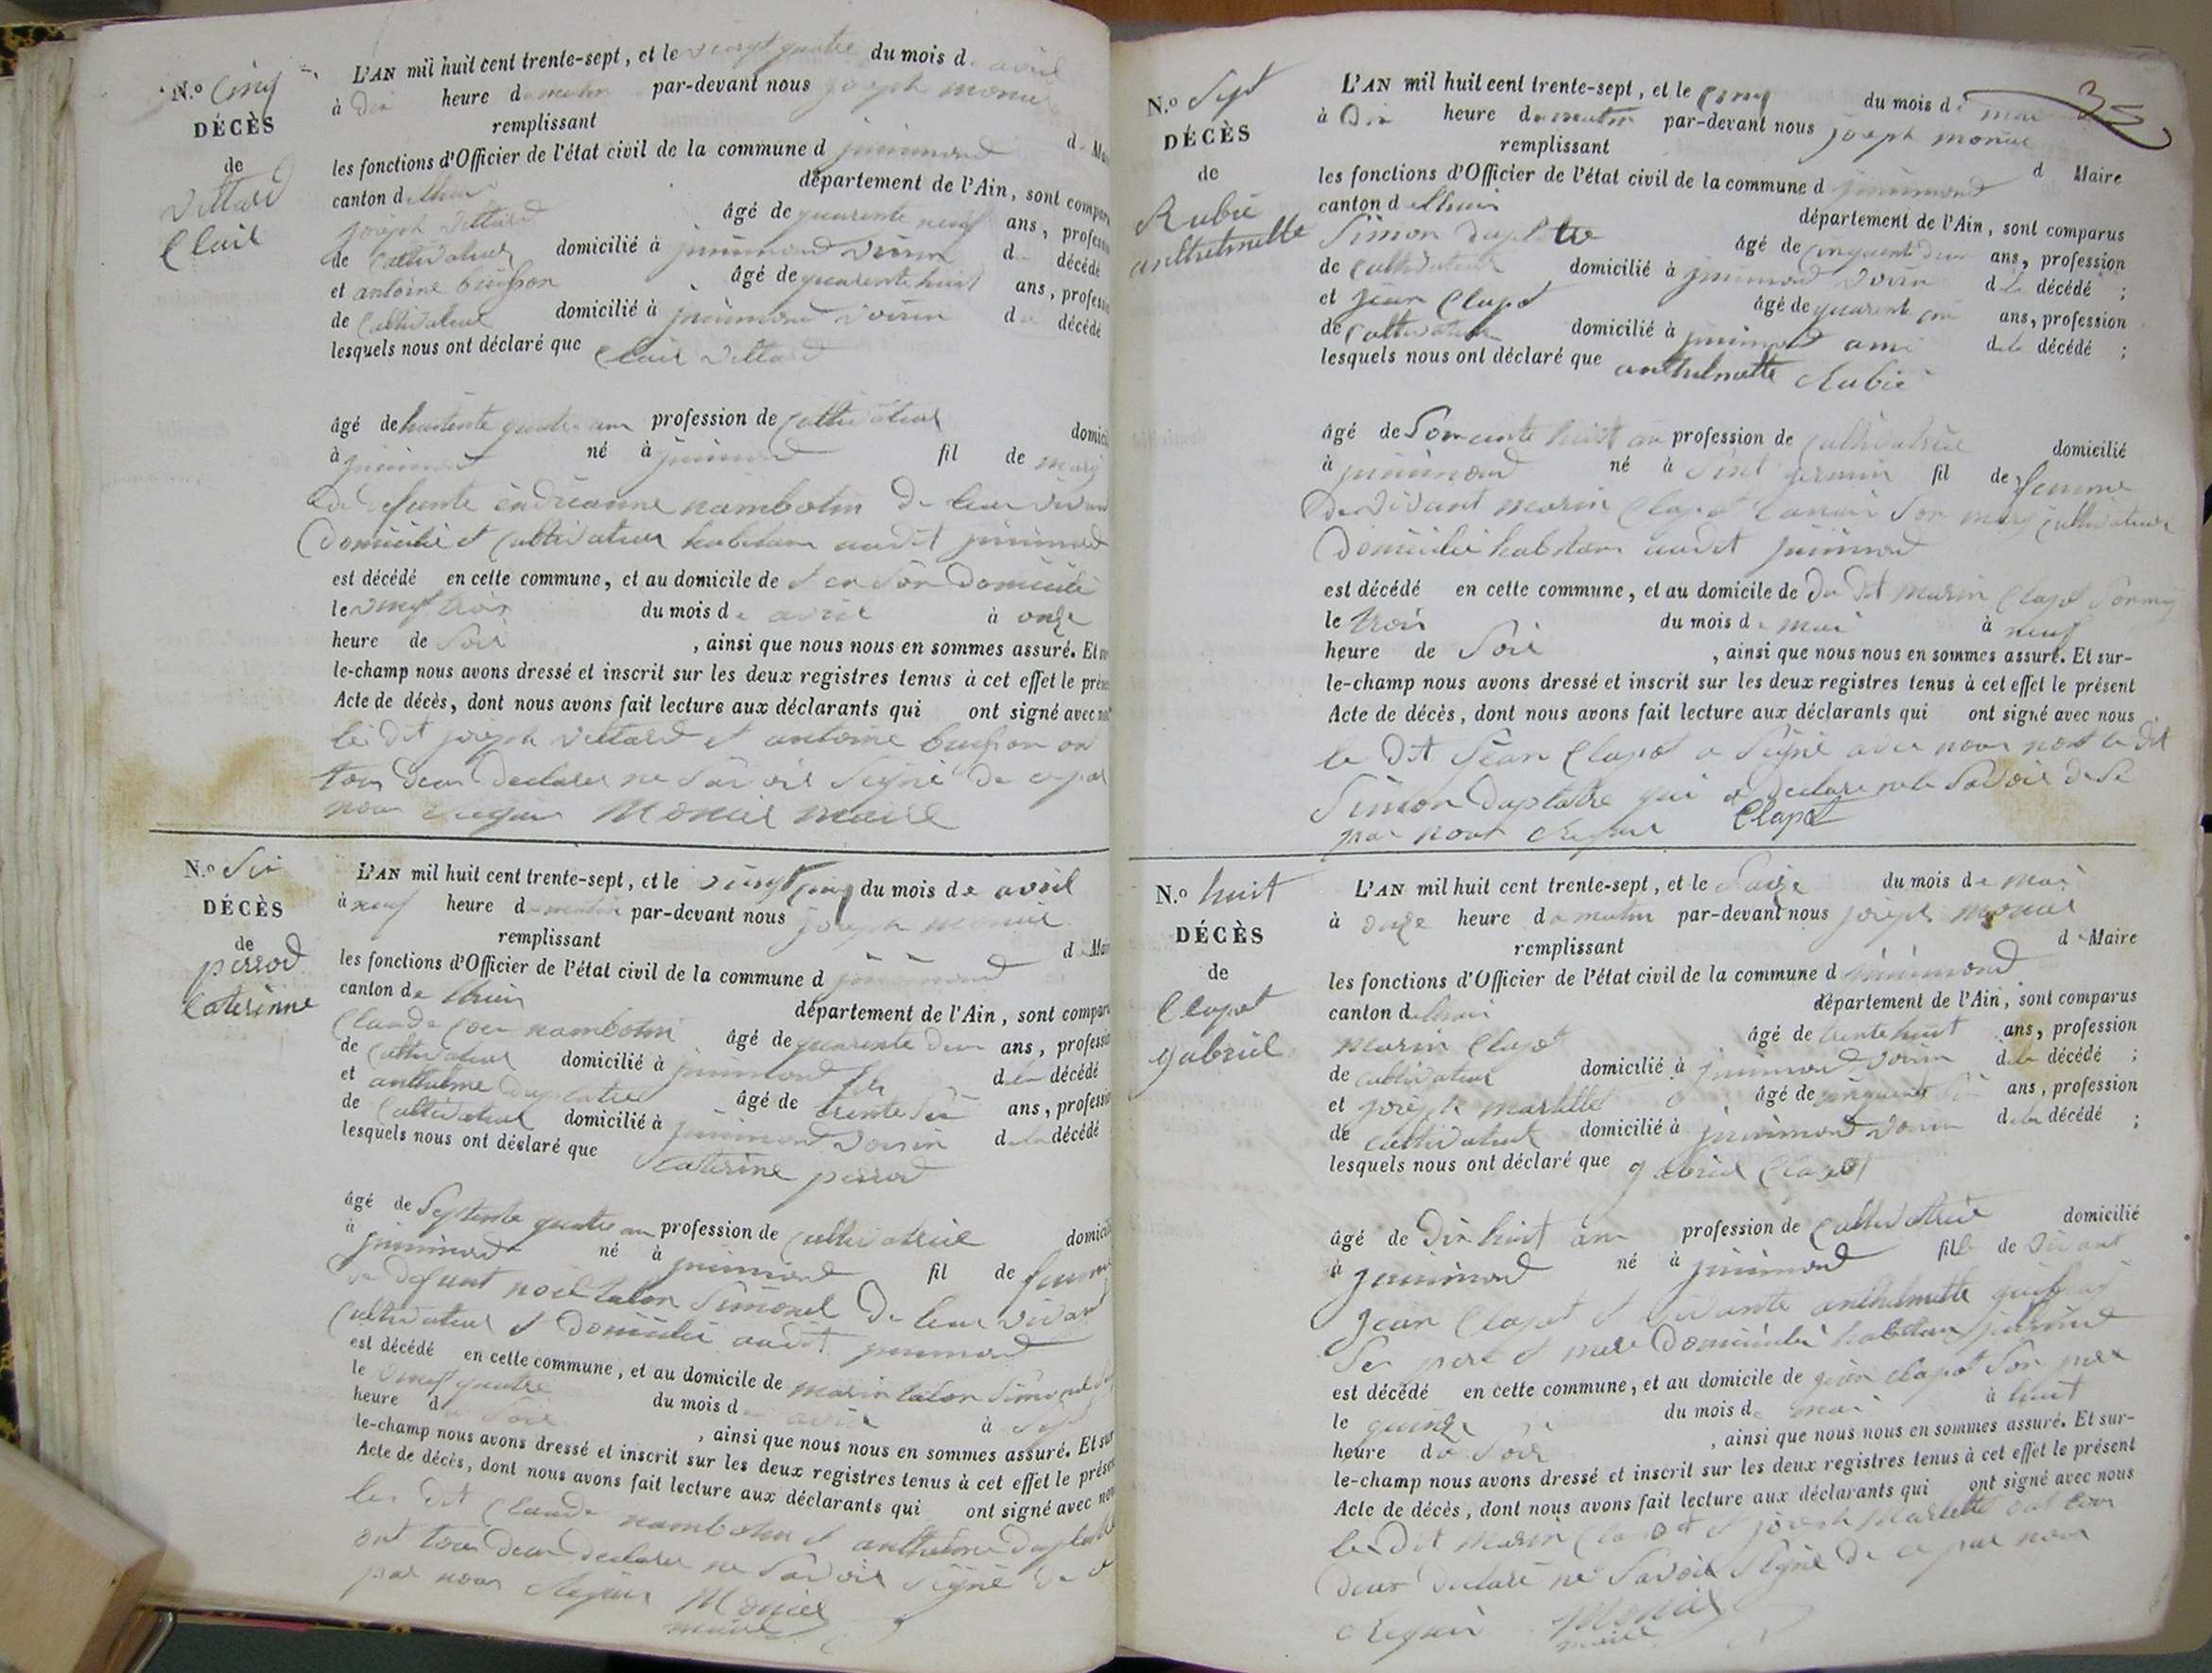 N.º Cinq
DÉCÈS
de
Vittard
Clair
L'AN mil huit cent trente-sept, et le vingt quatre du mois de avril
à dix heure du matin par-devant nous joseph monier
remplissant
les fonctions d'Officier de l'état civil de la commune d jujurieux d Mai
canton d lhuis
département de l'Ain, sont compar
joseph Vittard âgé de quarente neuf ans, profess
de cultivateur domicilié à voisin du décédé
et antoine buisson âgé de quarente huit ans, profess
de cultivateur domicilié à voisin du décédé
lesquels nous ont déclaré que Clair Vittard
âgé de huitente quatre an profession de cultivateur domici
à né à fil de mary
de defunte andréanne nambotin de leur vivan
Domicilié et cultivateur habitan audit
est décédé en cette commune, et au domicile de et en son Domicile
le vingt trois du mois de avril à onze
heure de soir , ainsi que nous nous en sommes assuré. Et
le-champ nous avons dressé et inscrit sur les deux registres tenus à cet effet le prése
Acte de décès, dont nous avons fait lecture aux déclarants qui ont signé avec no
les dit joseph Vittard et antoine buisson on
tous deux declarer ne savoir signé de ce par
nous requis Monier maire
N.º Six
DÉCÈS
de
perrod
Caterinne
L'AN mil huit cent trente-sept, et le vingt cinq du mois de avril
à neuf heure du matin par-devant nous joseph monier
remplissant d Mair
les fonctions d'Officier de l'état civil de la commune d
canton de lhuis
département de l'Ain, sont compar
Claude nambotin âgé de quarente deux ans, professio
de cultivateur domicilié à de la décédé
et anthelme duplatre âgé de trente six ans, profess
de cultivateur domicilié à voisin de la décédé
lesquels nous ont déclaré que Catterine perrod
âgé de septente quatre an profession de cultivatrice domici
à né à fil de femme
de defunt noel talon simonel de leur vivant
cultivateur et domicilié audit
est décédé en cette commune, et au domicile de marin talon simonel
le vingt quatre du mois d avril à sept
heure du soir , ainsi que nous nous en sommes assuré. Et sur
le-champ nous avons dressé et inscrit sur les deux registres tenus à cet effet le prése
Acte de décès, dont nous avons fait lecture aux déclarants qui ont signé avec nou
les dit Claude nambotin et anthelme duplatre
ont tous deux declarer ne savoir signé de ce
par nous requis Monier
maire
35
N.º Sept
DÉCÈS
de
Rubié
anthelmette
L'AN mil huit cent trente-sept, et le cinq du mois de mai
à Dix heure du matin par-devant nous joseph monier
remplissant d Maire
les fonctions d'Officier de l'état civil de la commune d
canton d lhuis
département de l'Ain, sont comparus
Simon duplatre âgé de cinquente deux ans, profession
de cultivateur domicilié à voisin de la décédé ;
et jean Clapot âgé de quarente ans, profession
de cultivateur domicilié à ami de la décédé ;
lesquels nous ont déclaré que anthelmette Rubié
âgé de Soixante huit an profession de cultivatrice domicilié
à né à germain fil de femme
de vivant marin Clapot son mary cultivateur
Domicilié habitan audit
est décédé en cette commune, et au domicile de du dit marin Clapot son mary
le trois du mois de mai à neuf
heure de soir , ainsi que nous nous en sommes assuré. Et sur-
le-champ nous avons dressé et inscrit sur les deux registres tenus à cet effet le présent
Acte de décès, dont nous avons fait lecture aux déclarants qui ont signé avec nous
le dit jean Clapot a signé avec nous non le dit
Simon duplatre qui a declaré ne le savoir de ce
par nous requis Clapot
N.º huit
DÉCÈS
de
Clapot
gabriel
L'AN mil huit cent trente-sept, et le saize du mois de mai
à onze heure du matin par-devant nous joseph monier
remplissant d Maire
les fonctions d'Officier de l'état civil de la commune d
canton de lhuis
département de l'Ain, sont comparus
marin Clapot âgé de trente huit ans, profession
de cultivateur domicilié à voisin de la décédé ;
et joseph martelle âgé de cinquente ans, profession
de cultivateur domicilié à voisin de la décédé ;
lesquels nous ont déclaré que gabriel Clapot
âgé de Dix huit an profession de cultivatrice domicilié
à né à fille de vivant
jean Clapot et vivante anthelmette
ses pere et mere Domicilié habitan
est décédé en cette commune, et au domicile de jean clapot son pere
le quinze du mois de mai à huit
heure du soir , ainsi que nous nous en sommes assuré. Et sur-
le-champ nous avons dressé et inscrit sur les deux registres tenus à cet effet le présent
Acte de décès, dont nous avons fait lecture aux déclarants qui ont signé avec nous
les dit marin Clapot et joseph martelle ont tous
deux declaré ne savoir signé de ce par nous
requis Monier
maire